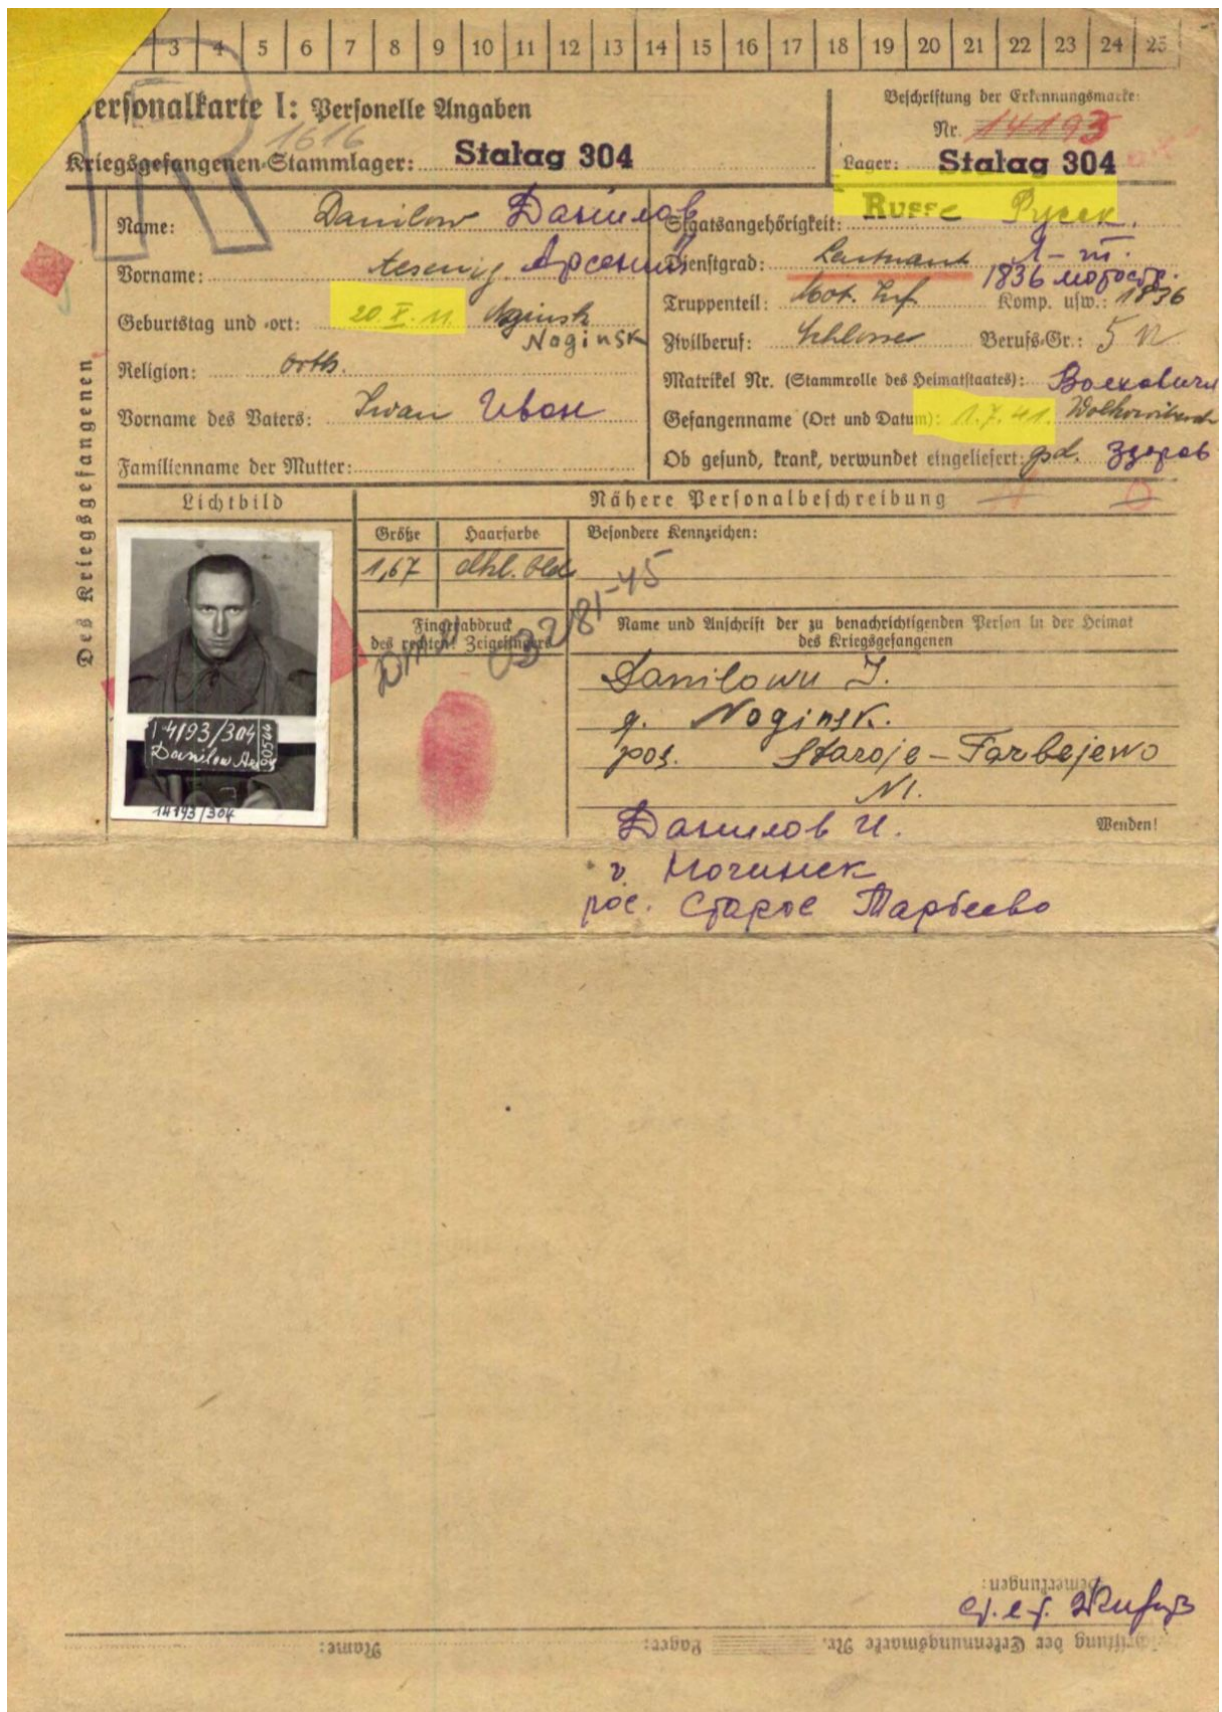 3 4 5 6 7 8 9 10 11 12 13 14 15 16 17 18 19 20 21 22 23 24 25
Personalkarte I: Personelle Angaben
1616
Kriegsgefangenen-Stammlager: Stalag 304
Beschriftung der Erkennungsmarke:
Nr. 14193
Lager: Stalag 304
Des Kriegsgefangenen
Name: Danilow Данилов
Vorname: Арсений
Geburtstag und -ort: 20 X. 11. Noginsk
Noginsk
Religion: orth.
Vorname des Vaters: Iwan Иван
Familienname der Mutter:
Staatsangehörigkeit: Russe Русск.
Dienstgrad: Leutnant Л-т.
1836 мотостр.
Truppenteil: Mot. Inf. Komp. usw.: 1836
Zivilberuf: Schlosser Berufs-Gr.: 5
Matrikel Nr. (Stammrolle des Heimatstaates):
Gefangenname (Ort und Datum): 1.7.41.
Ob gesund, krank, verwundet eingeliefert: gsd. здоров
Lichtbild
Nähere Personalbeschreibung
Größe Haarfarbe Besondere Kennzeichen:
1,67 dkl. bld.
Fingerabdruck
des rechten! Zeigefingers
Name und Anschrift der zu benachrichtigenden Person in der Heimat
des Kriegsgefangenen
14193/304
Danilow Ars
14193/304
Danilowu I.
g. Noginsk.
pos. Staroje-Farbejewo
N1.
Данилов И.
г. Ногинск
пос. Старое Тарбеево
Wenden!
Bemerkungen:
Beschriftung der Erkennungsmarke Nr. Lager: Name: